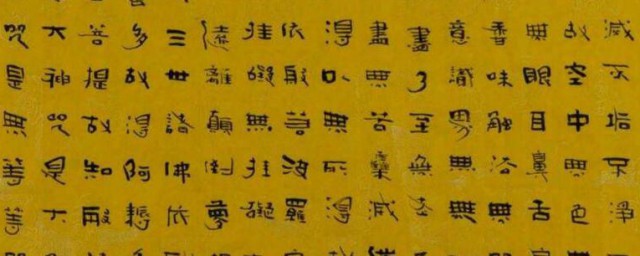 減不垢不淨
故空中無色
無眼耳鼻舌
香味觸法無
意識界無無
盡乃至無老
盡無苦集減
得以無所得
依般若波羅
挂礙無挂礙
遠離顛倒夢
三世諸佛依
多故得阿耨
菩提故知般
大神咒是大
咒是無等等